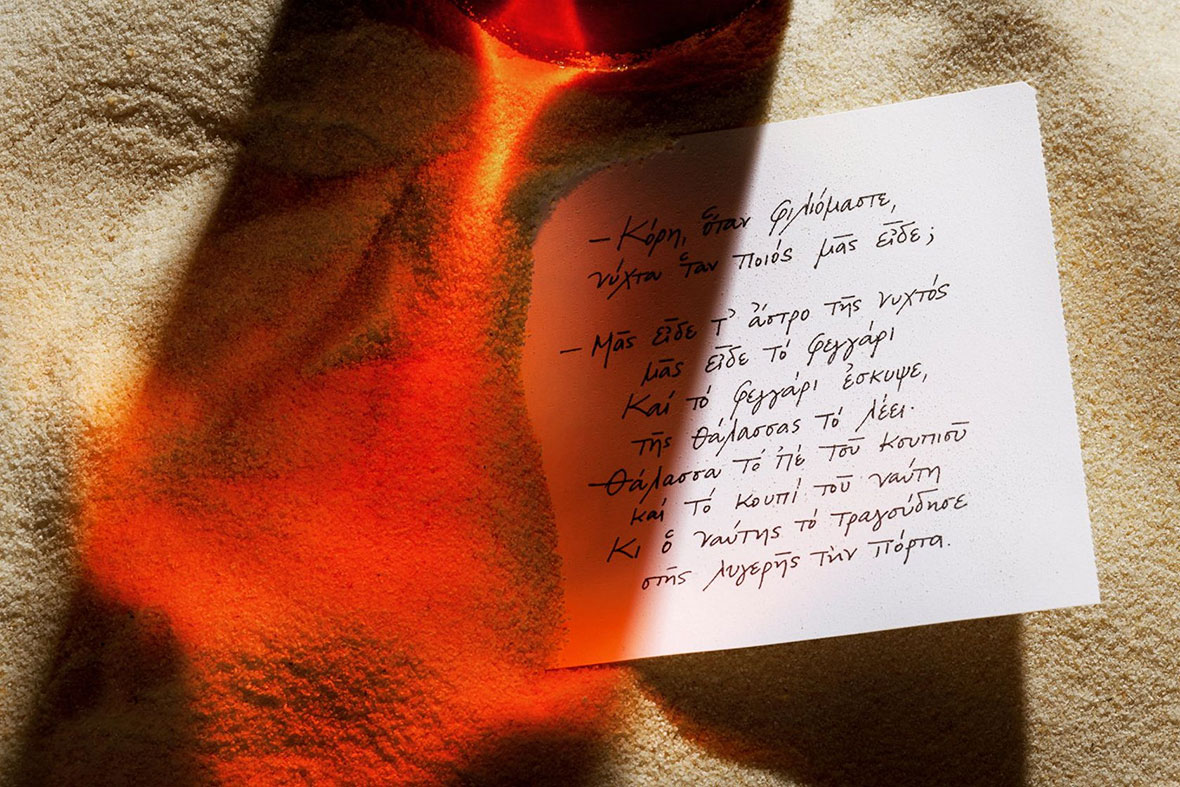 — Κόρη, ὅταν φιλιόμαστε,
νύχτα ἦταν ποιός μᾶς εἶδε;
— Μᾶς εἶδε τ' ἄστρο τῆς νυχτός
μᾶς εἶδε τό φεγγάρι
Καί τό φεγγάρι ἔσκυψε,
τῆς θάλασσας τό λέει·
Θάλασσα τό 'πέ τοῦ κουπιοῦ
καί τό κουπί τοῦ ναύτη
Κι ὁ ναύτης τό τραγούδησε
στῆς λυγερῆς τὴν πόρτα.